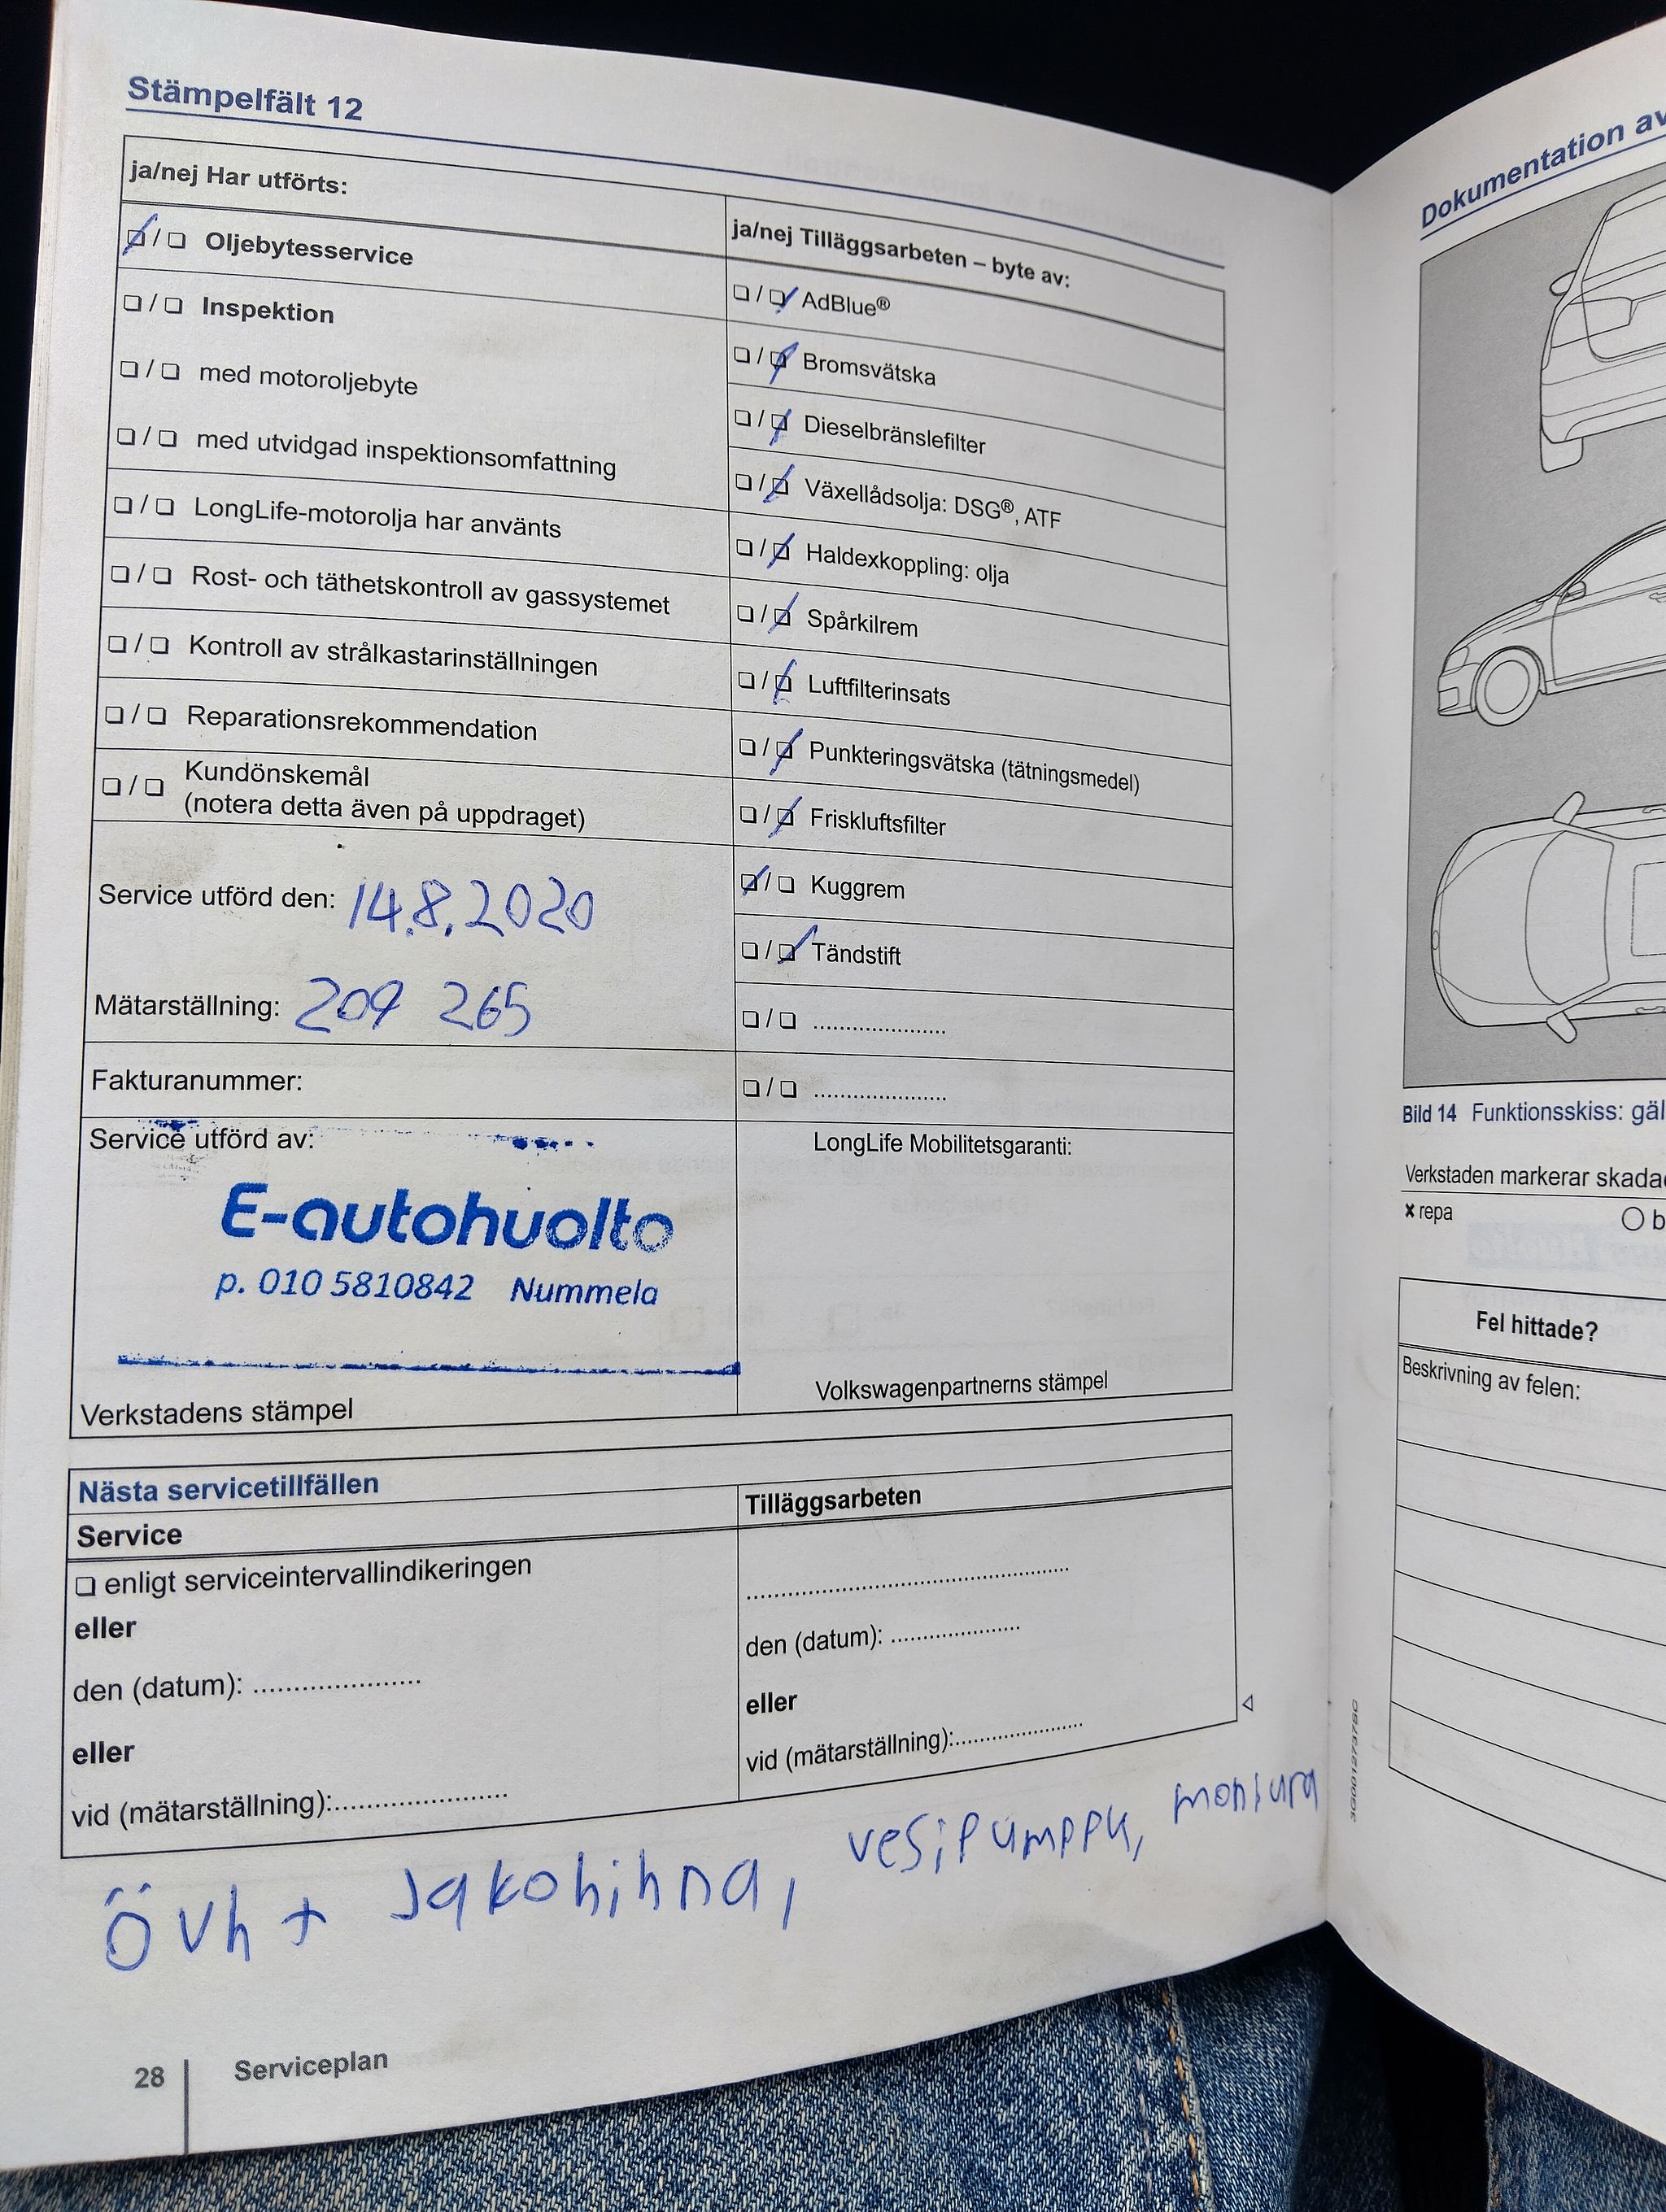 Stämpelfält 12
ja/nej Har utförts:
❏ / ❏ Oljebytesservice
❏ / ❏ Inspektion
❏ / ❏ med motoroljebyte
❏ / ❏ med utvidgad inspektionsomfattning
❏ / ❏ LongLife-motorolja har använts
❏ / ❏ Rost- och täthetskontroll av gassystemet
❏ / ❏ Kontroll av strålkastarinställningen
❏ / ❏ Reparationsrekommendation
❏ / ❏ Kundönskemål
(notera detta även på uppdraget)
Service utförd den: 14.8.2020
Mätarställning: 209 265
Fakturanummer:
Service utförd av:
E-autohuolto
p. 010 5810842 Nummela
Verkstadens stämpel
ja/nej Tilläggsarbeten – byte av:
❏ / ❏ AdBlue®
❏ / ❏ Bromsvätska
❏ / ❏ Dieselbränslefilter
❏ / ❏ Växellådsolja: DSG®, ATF
❏ / ❏ Haldexkoppling: olja
❏ / ❏ Spårkilrem
❏ / ❏ Luftfilterinsats
❏ / ❏ Punkteringsvätska (tätningsmedel)
❏ / ❏ Friskluftsfilter
❏ / ❏ Kuggrem
❏ / ❏ Tändstift
❏ / ❏ ......................
❏ / ❏ ......................
LongLife Mobilitetsgaranti:
Volkswagenpartnerns stämpel
Nästa servicetillfällen
Service
❏ enligt serviceintervallindikeringen
eller
den (datum): ......................
eller
vid (mätarställning):......................
Tilläggsarbeten
......................................................
den (datum): ......................
eller
vid (mätarställning):......................
övh + Jakohihna, vesipumppu,
28 Serviceplan
3G0012737BC
Dokumentation av
Bild 14 Funktionsskiss:
Verkstaden markerar
× repa
Fel hittade?
Beskrivning av felen: